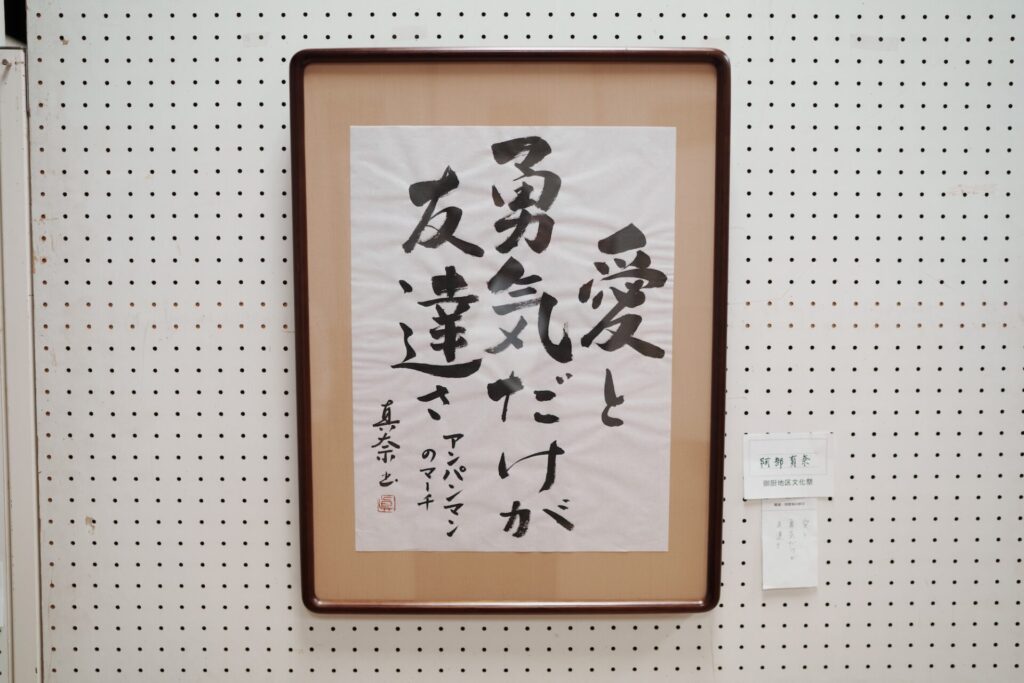 愛と
勇気だけが
友達さ
アンパンマン
のマーチ
真奈書
阿部真奈
御厨地区文化祭
愛と
勇気だけが
友達さ